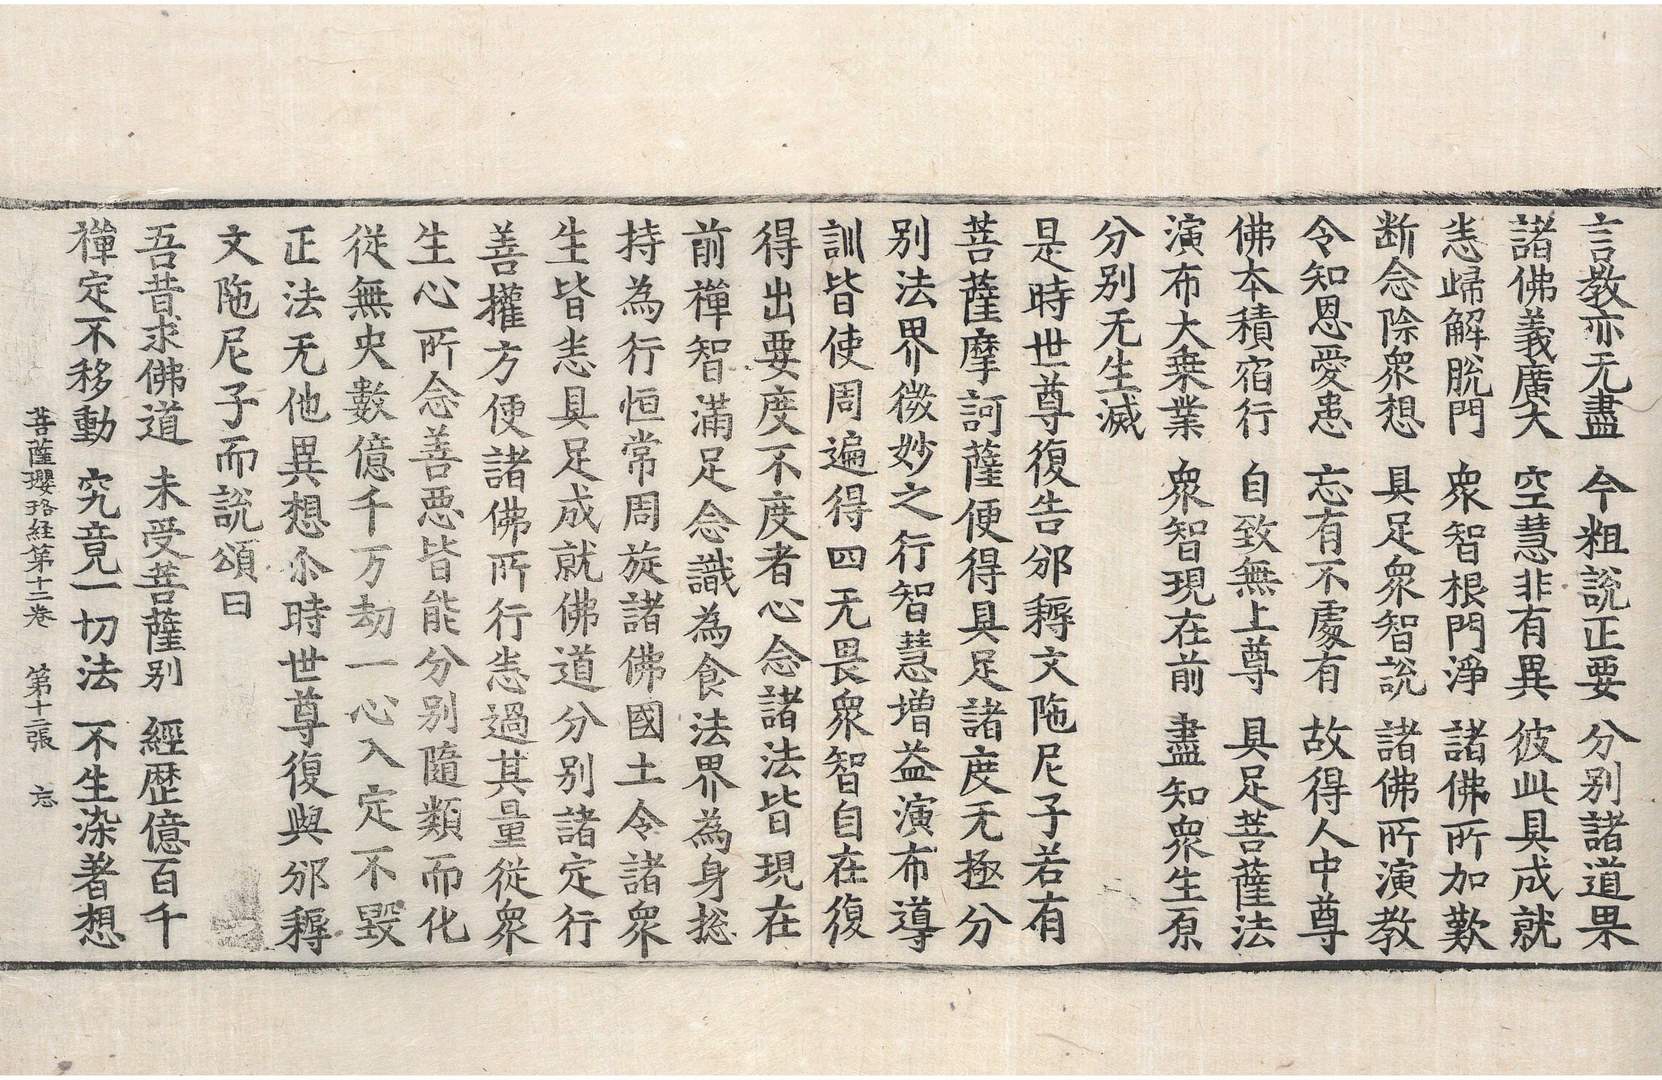 言教亦无盡 今粗說正要 分别諸道果
諸佛義廣大 空慧非有異 彼此具成就
恚歸解脫門 衆智根門淨 諸佛所加歎
断念除衆想 具足衆智說 諸佛所演教
令知恩愛恚 忘有不處有 故得人中尊
佛本積宿行 自致無上尊 具足菩薩法
演布大乗業 衆智現在前 盡知衆生原
分别无生滅
是時世尊復告邠耨文陁尼子若有
菩薩摩訶薩便得具足諸度无極分
别法界微妙之行智慧增益演布導
訓皆使周遍得四无畏衆智自在復
得出要度不度者心念諸法皆現在
前禪智滿足念識為食法界為身捴
持為行恒常周旋諸佛國土令諸衆
生皆恚具足成就佛道分别諸定行
善權方便諸佛所行恚過其量從衆
生心所念善惡皆能分别隨類而化
從無央數億千万劫一心入定不毀
正法无他異想尒時世尊復與邠耨
文陁尼子而說頌曰
吾昔求佛道 未受菩薩别 經歷億百千
禪定不移動 究竟一切法 不生染著想
菩薩瓔珞経第十二卷 第十二張 忘